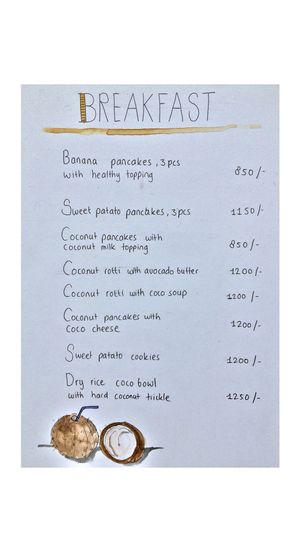 BREAKFAST
Banana pancakes, 3 pcs
with healthy topping 850/-
Sweet patato pancakes, 3 pcs 1150/-
Coconut pancakes with
coconut milk topping 850/-
Coconut rotti with avocado butter 1200/-
Coconut rotti with coco soup 1200/-
Coconut pancakes with
coco cheese 1200/-
Sweet patato cookies 1200/-
Dry rice coco bowl
with hard coconut trickle 1250/-